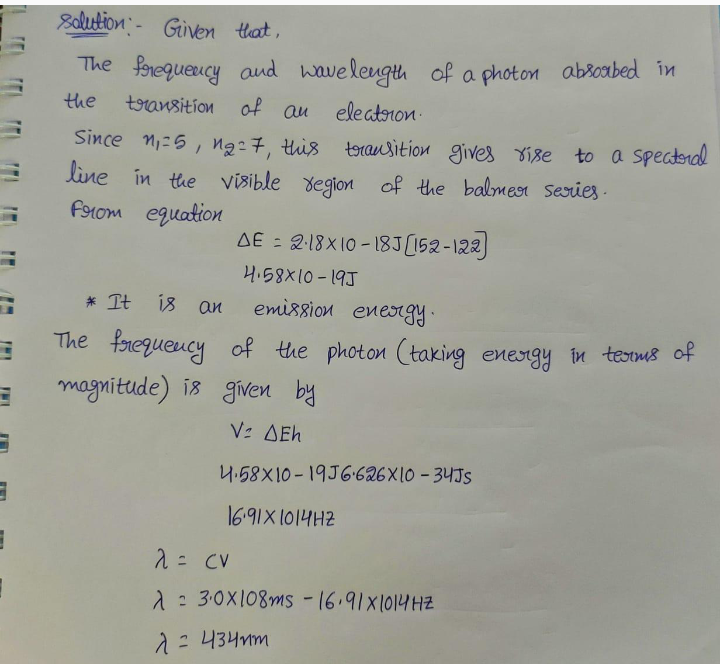 Solution:- Given that,
The frequency and wavelength of a photon absorbed in
the transition of an electron.
Since n1=5, n2=7, this transition gives rise to a spectoral
line in the visible region of the balmer series.
From equation
ΔE = 2.18×10-18J[152-122]
4.58×10-19J
* It is an emission energy.
The frequency of the photon (taking energy in terms of
magnitude) is given by
V= ΔEh
4.58×10-19J6.626×10-34Js
16.91×1014HZ
λ = CV
λ = 3.0×108ms-16.91×1014HZ
λ = 434nm